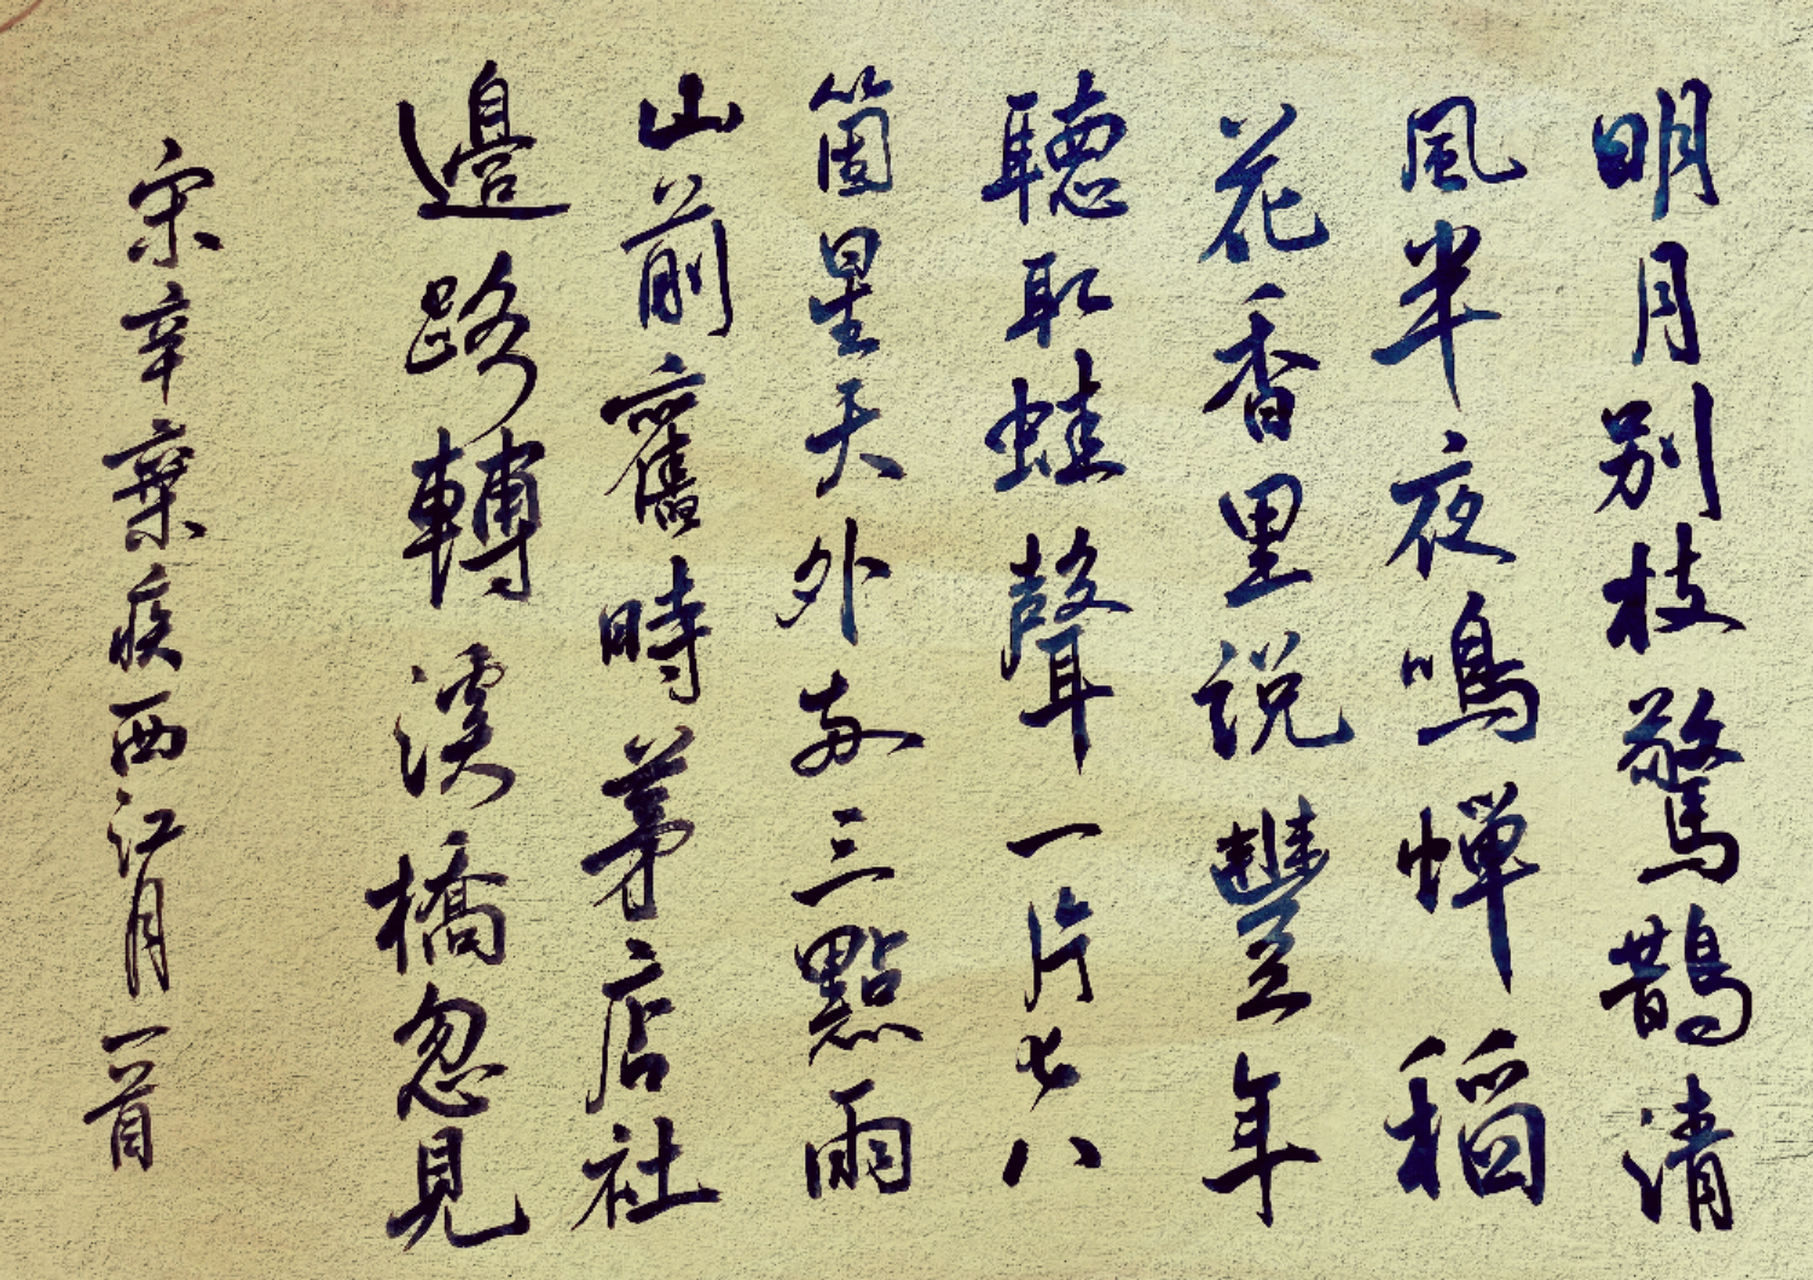 明月別枝驚鵲清
風半夜鳴蟬稻
花香里説豐年
聽取蛙聲一片七八
箇星天外兩三點雨
山前舊時茅店社
邊路轉溪橋忽見
宋辛棄疾西江月一首